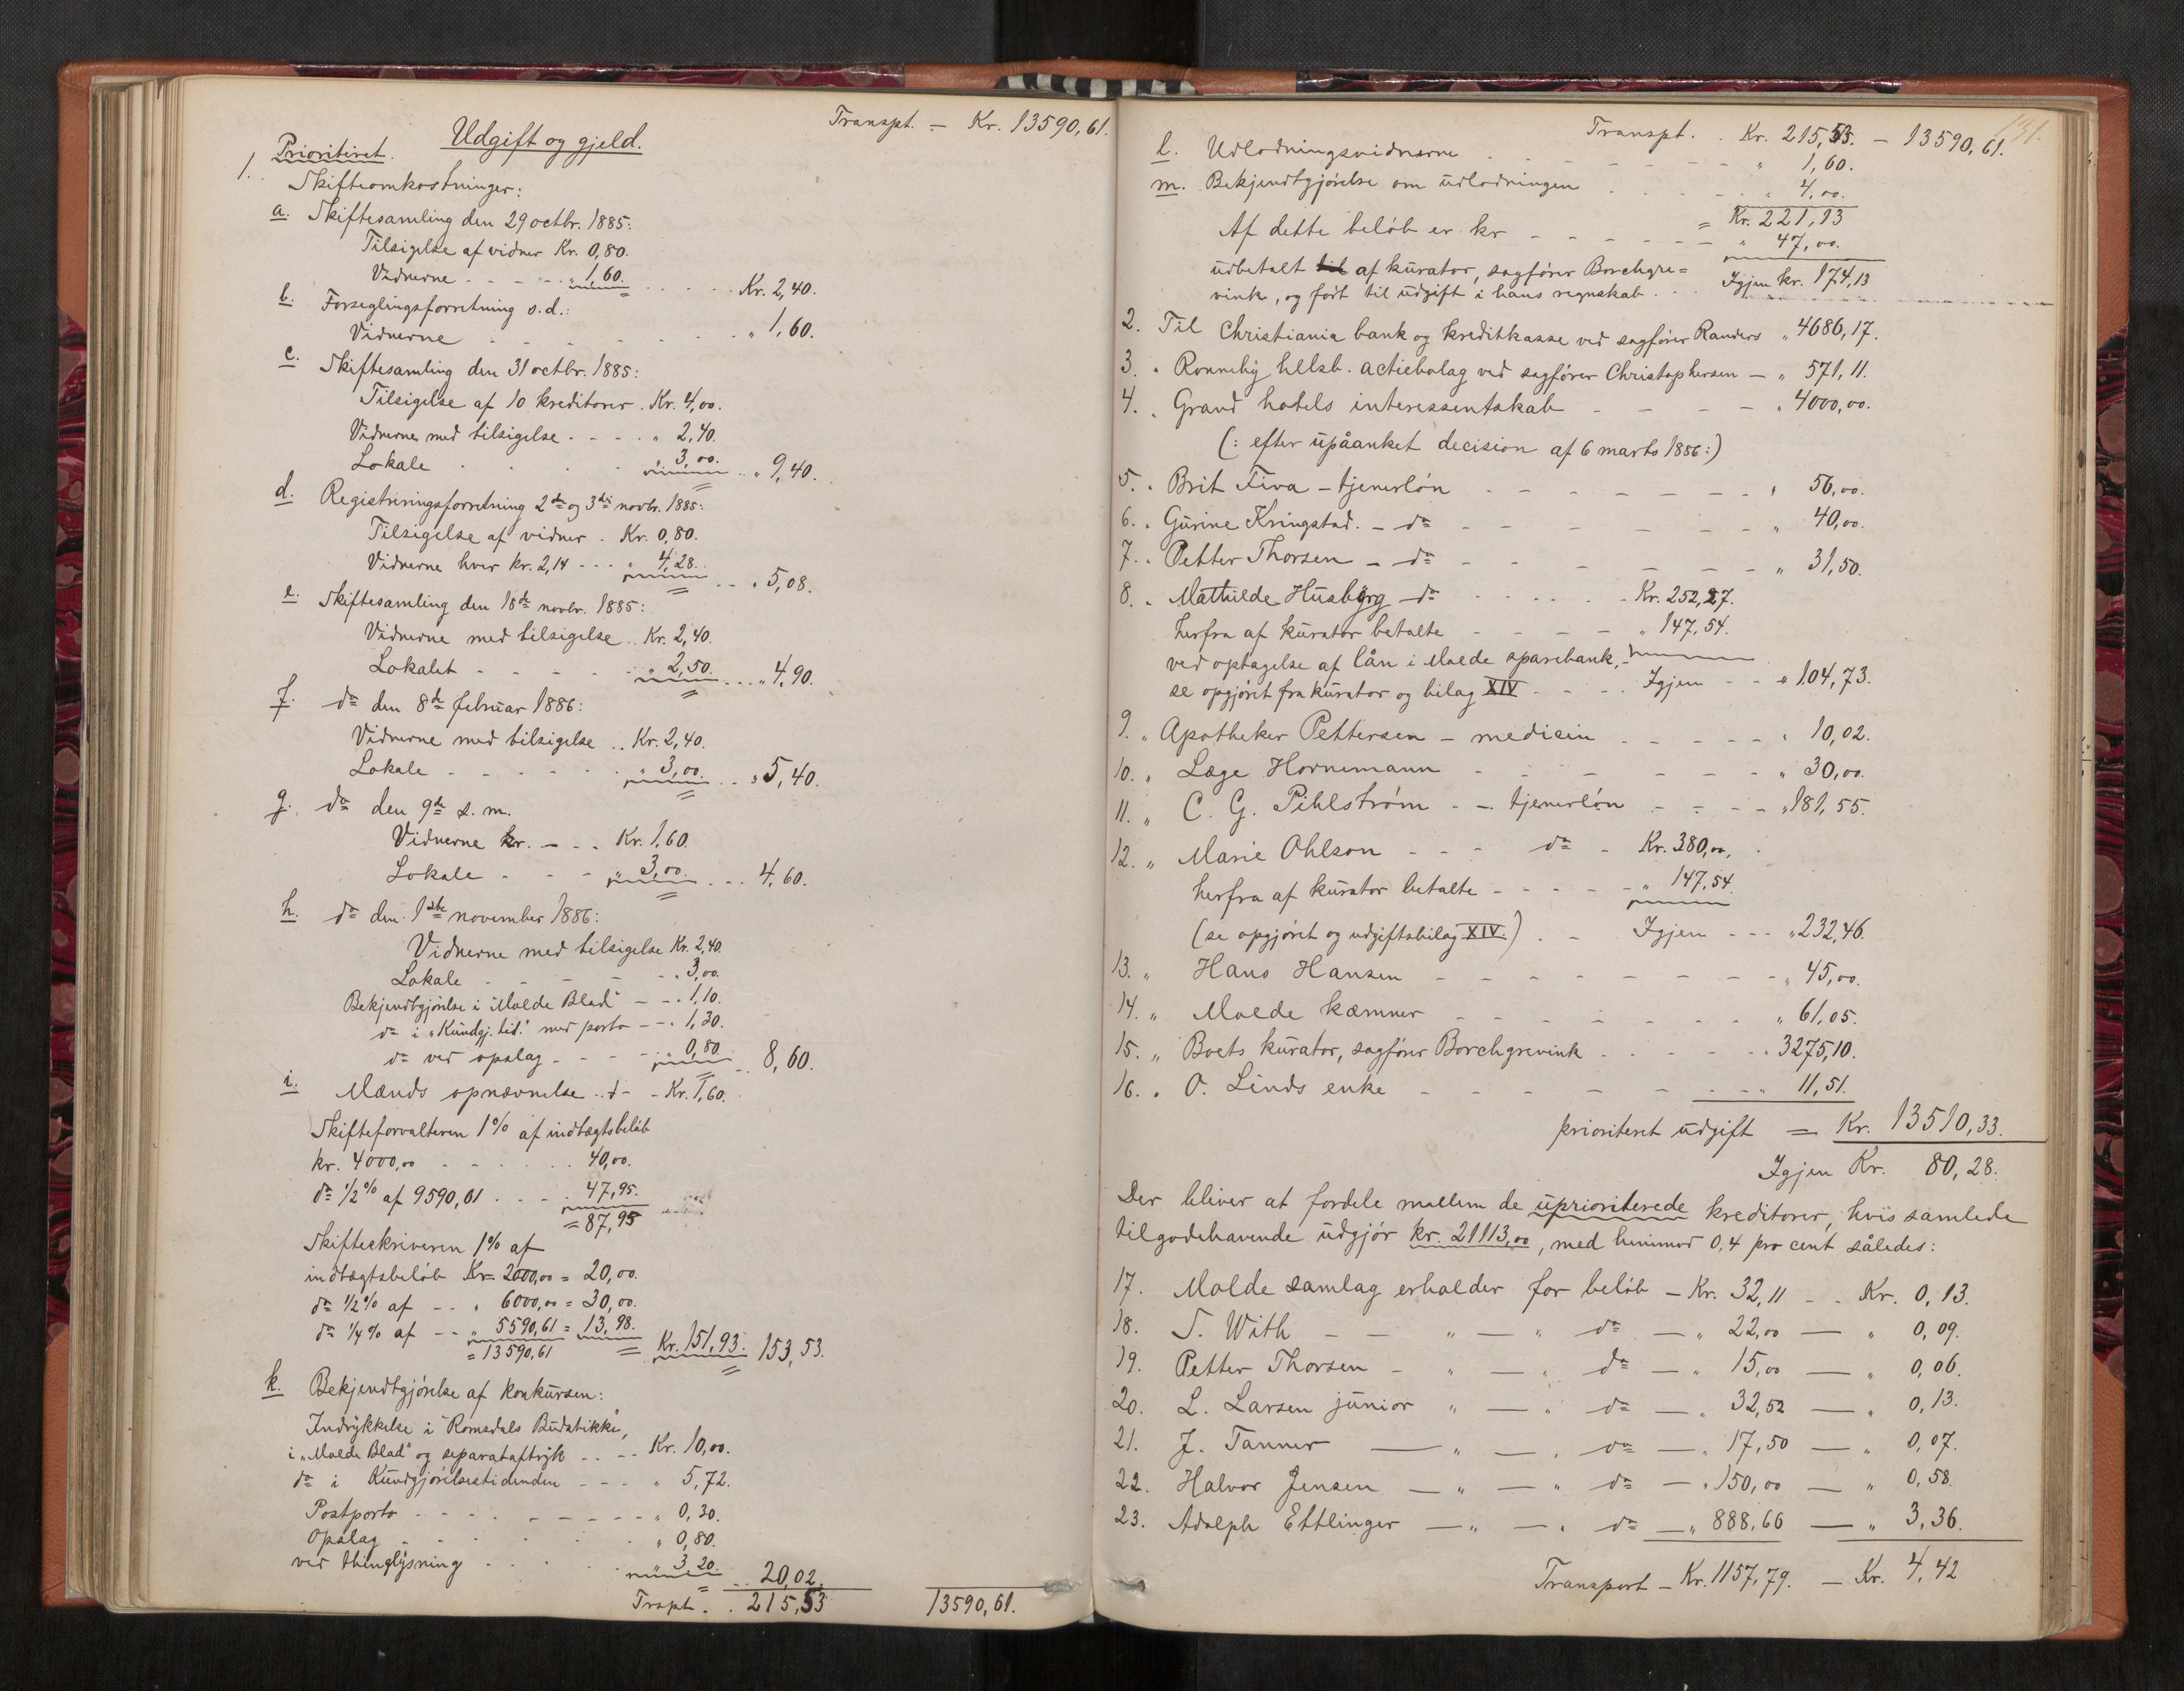 Transpt. - Kr. 13590,61.
Udgift og gjeld.
1. Prioriteret.
Skifteomkostninger:
a. Skiftesamling den 29 octbr. 1885:
Tilsigelse af vidner Kr. 0,80.
Vidnerne - - - " 1,60. - - - Kr. 2,40.
b. Forseglingsforretning s.d.:
Vidnerne - - - " 1,60.
c. Skiftesamling den 31 octbr. 1885:
Tilsigelse af 10 kreditorer . Kr. 4,00.
Vidnerne med tilsigelse - - - " 2,40.
Lokale - - - " 3,00. - - " 9,40.
d. Registreringsforretning 2de og 3die novbr. 1885:
Tilsigelse af vidner . Kr. 0,80.
Vidnerne hver kr. 2,14 - - - " 4,28. - - " 5,08.
e. Skiftesamling den 18de novbr. 1885:
Vidnerne med tilsigelse .. Kr. 2,40.
Lokalet - - - " 2,50. - - - " 4,90.
f. do den 8de februar 1886:
Vidnerne med tilsigelse .. Kr. 2,40.
Lokale - - - " 3,00. - - " 5,40.
g. do den 9de s.m.
Vidnerne kr. - - - Kr. 1,60.
Lokale - - - " 3,00. - - - 4,60.
h. do den 1ste november 1886:
Vidnerne med tilsigelse Kr. 2,40.
Lokale - - - " 3,00.
Bekjendtgjörelse i "Molde Blad" - - " 1,10.
do i "Kundgj. tid." med porto - - " 1,30.
do ved opslag - - - " 0,80. - - 8,60.
i. Mænds opnævnelse - - - Kr. 1,60.
Skifteforvalteren 1% af indtægtsbeløb
kr. 4000,00 - - - 40,00.
do 1/2% af 9590,61 - - - 47,95.
= 87,95
Skifteskriveren 1% af
indtægtsbeløb Kr. 2000,00 = 20,00.
do 1/2% af - - " 6000,00 = 30,00.
do 1/4% af - - " 5590,61 = 13,98.
= 13590,61 = Kr. 151,93. 153,53.
k. Bekjendtgjörelse af konkursen:
Indrykkelse i "Romsdals Budstikke",
i "Molde Blad" og separataftryk - - - Kr. 10,00.
do i Kundgjörelsestidenden - - - " 5,72.
Postporto - - - " 0,30.
Opslag - - - " 0,80.
ved thinglysning - - - " 3,20. - - 20,02.
Trspt. . . 215,53 13590,61.
Transpt. . Kr. 215,53. - 13590,61.
l. Udlodningsvidnerne - - - " 1,60.
m. Bekjendtgjörelse om udlodningen - - - " 4,00.
= Kr. 221,13
Af dette beløb er kr - - - " 47,00.
udbetalt til af kurator, sagfører Borchgre=
vink, og ført til udgift i hans regnskab . . Igjen kr. 174,13
2. Til Christiania bank og kreditkasse ved sagfører Randers " 4686,17.
3. " Ronneby helsb. actiebolag ved sagfører Christophersen - " 571,11.
4. " Grand hotels interessentskab - - - " 4000,00.
(: efter upåanket decision af 6 marts 1886:)
5. " Brit Fiva - tjenerløn - - - " 56,00.
6. " Gurine Kringstad. - do - - - " 40,00.
7. " Petter Thorsen - do - - - " 31,50.
8. " Mathilde Husbyrg do - - - Kr. 252,27.
herfra af kurator betalte - - - " 147,54.
ved optagelse af lån i Molde sparebank, -
se opgjöret fra kurator og bilag XIV - - - Igjen - - " 104,73.
9. " Apotheker Pettersen - medicin - - - " 10,02.
10. " Læge Hornemann - - - " 30,00.
11. " C. G. Pihlström - - tjenerløn - - - " 181,55.
12. " Marie Ohlson - - - do - Kr. 380,00.
herfra af kurator betalte - - - " 147,54
(se opgjöret og udgiftsbilag XIV.) . - Igjen - - - " 232,46.
13. " Hans Hansen - - - " 45,00.
14. " Molde kæmner - - - " 61,05.
15. " Boets kurator, sagfører Borchgrevink - - - 3275,10.
16. " O. Linds enke - - - " 11,51.
prioriteret udgift = Kr. 13510,33.
Igjen Kr. 80,28.
Der bliver at fordele mellem de uprioriterede kreditorer, hvis samlede
tilgodehavende udgjør kr. 21113,00, med henimod 0,4 pro cent således:
17. Molde samlag erholder for beløb - Kr. 32,11 - - Kr. 0,13.
18. S. With - - " - " do - " 22,00 - " 0,09.
19. Petter Thorsen - " - " do - " 15,00 - " 0,06.
20. L. Larsen junior " - " do - " 32,52 - " 0,13.
21. J. Tanner - " - " do - " 17,50 - " 0,07.
22. Halvor Jensen - " - " do - " 150,00 - " 0,58.
23. Adolph Ettlinger - " - " do - " 888,66 - " 3,36.
Transport - Kr. 1157,79. - Kr. 4,42